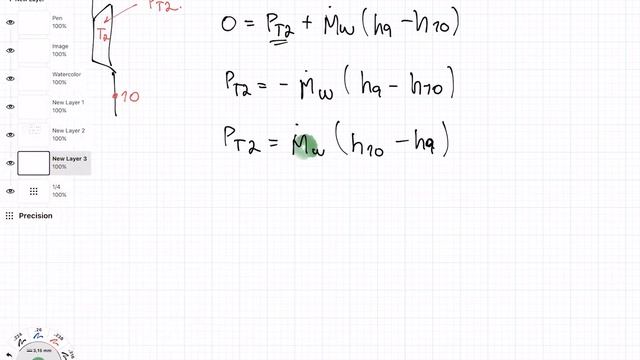 New Layer
Pen
100%
Image
100%
Watercolor
100%
New Layer 1
100%
New Layer 2
100%
New Layer 3
100%
1/4
100%
Precision
3,15 mm
PT2.
T2
10
0 = PT2 + ṁw (h9 − h10)
PT2 = − ṁw (h9 − h10)
PT2 = ṁw (h10 − h9)